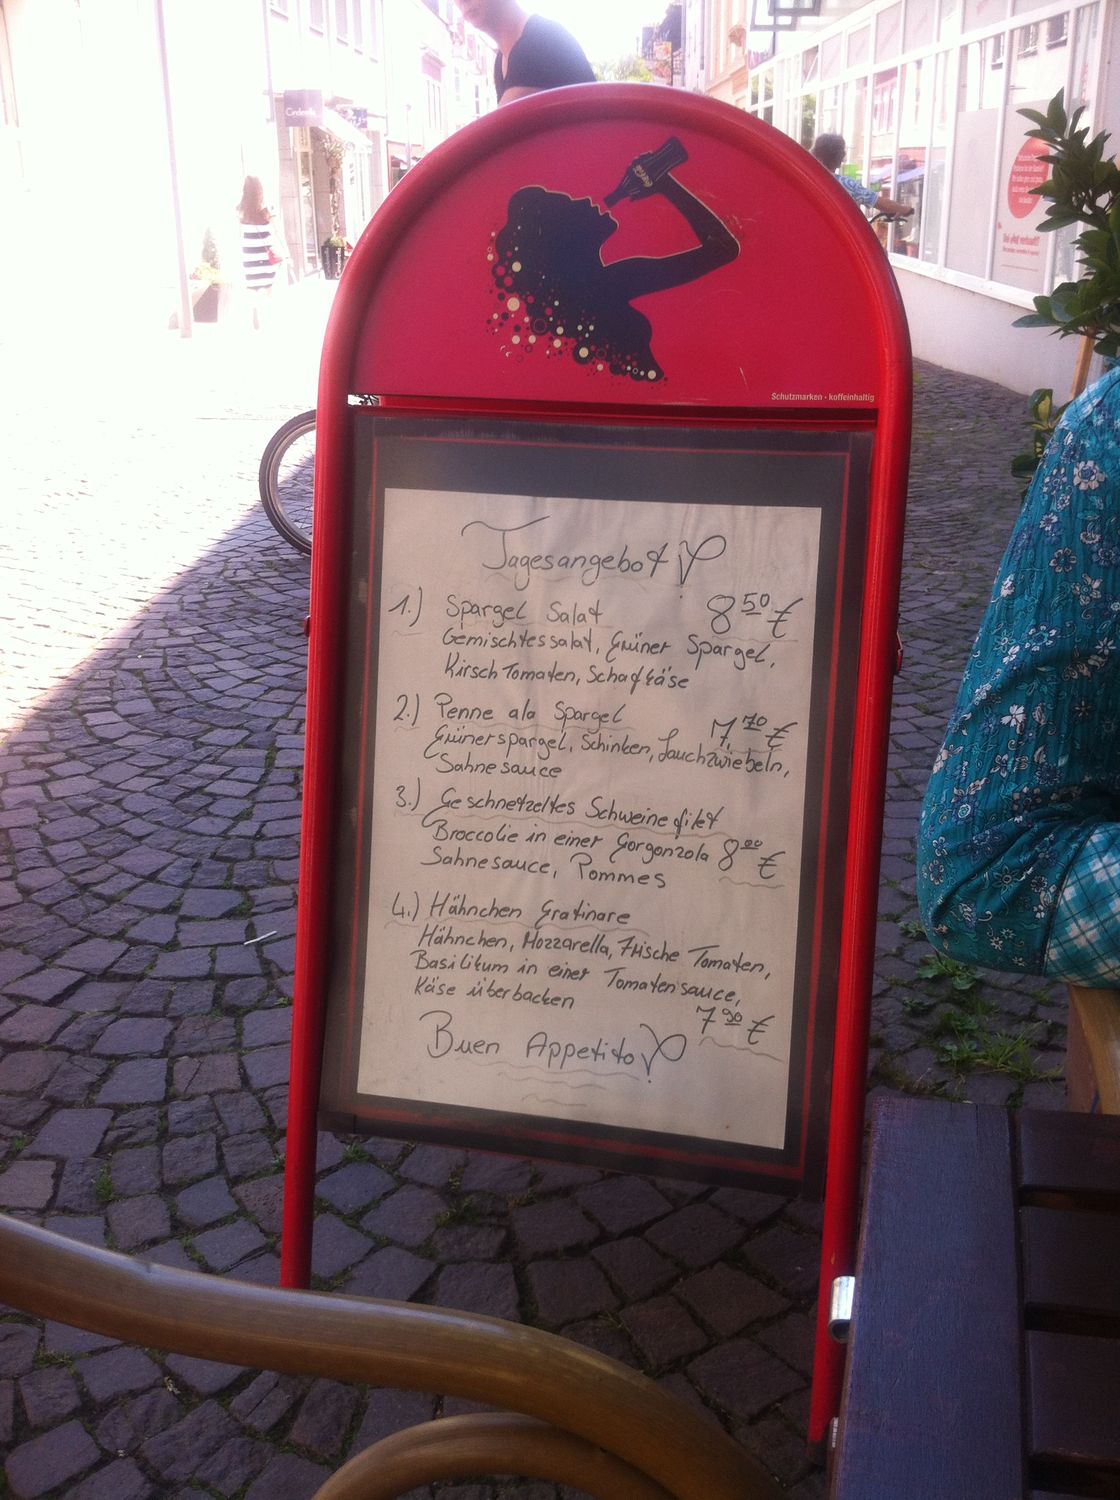 Cinderella
Schutzmarken · koffeinhaltig
Tagesangebot
1.) Spargel Salat 8 50 €
Gemischtessalat, Grüner Spargel,
Kirsch Tomaten, Schafkäse
2.) Penne ala Spargel 7,70 €
Grünerspargel, Schinken, Lauchzwiebeln,
Sahnesauce
3.) Geschnetzeltes Schweinefilet
Broccolie in einer Gorgonzola 8 00 €
Sahnesauce, Pommes
4.) Hähnchen Gratinare
Hähnchen, Mozzarella, Frische Tomaten,
Basilikum in einer Tomatensauce,
Käse überbacken
7 90 €
Buen Appetito